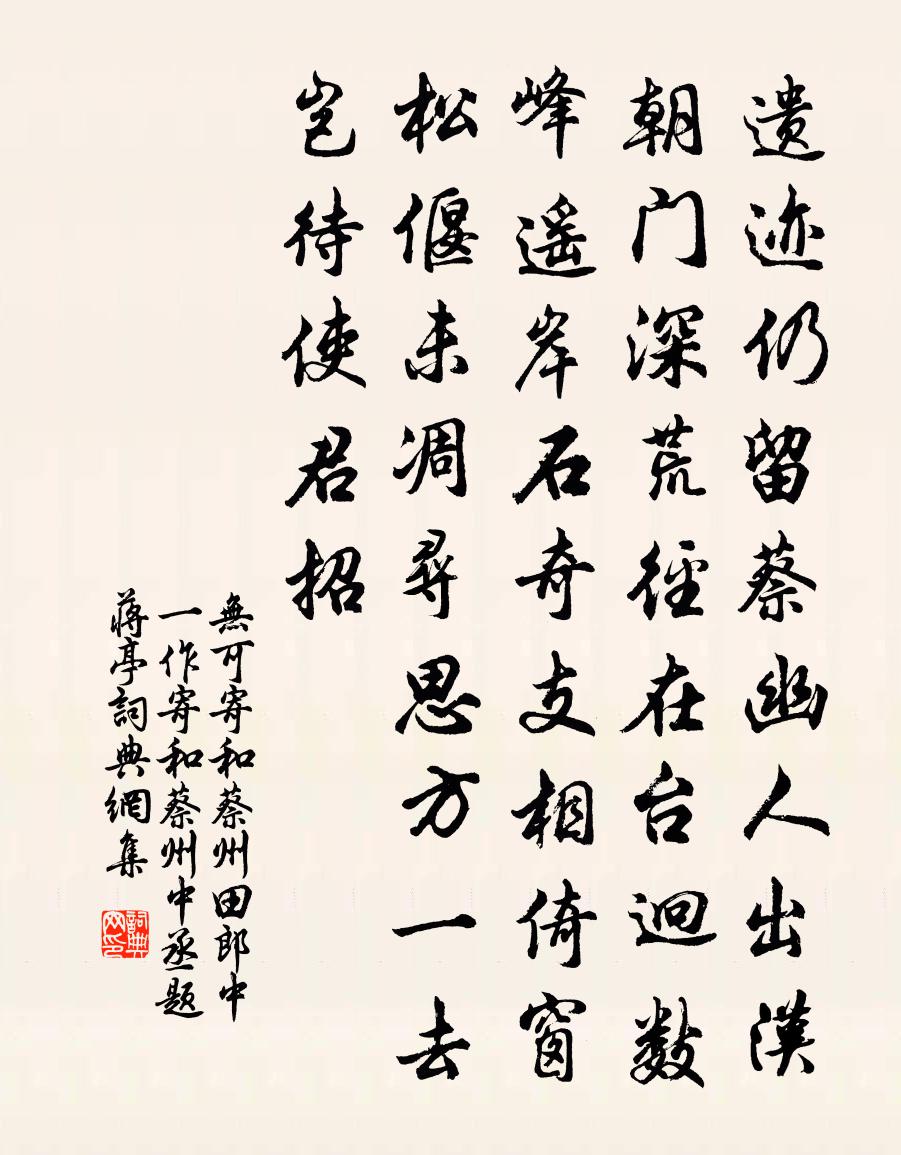 遗迹仍留蔡幽人出漢
朝门深荒径在台迥数
峰遥岸石奇支相倚窗
松偃未凋尋思方一去
岂待使君招
無可寄和蔡州田郎中
一作寄和蔡州中丞題
蔣亭詞典網集
詞典
网印